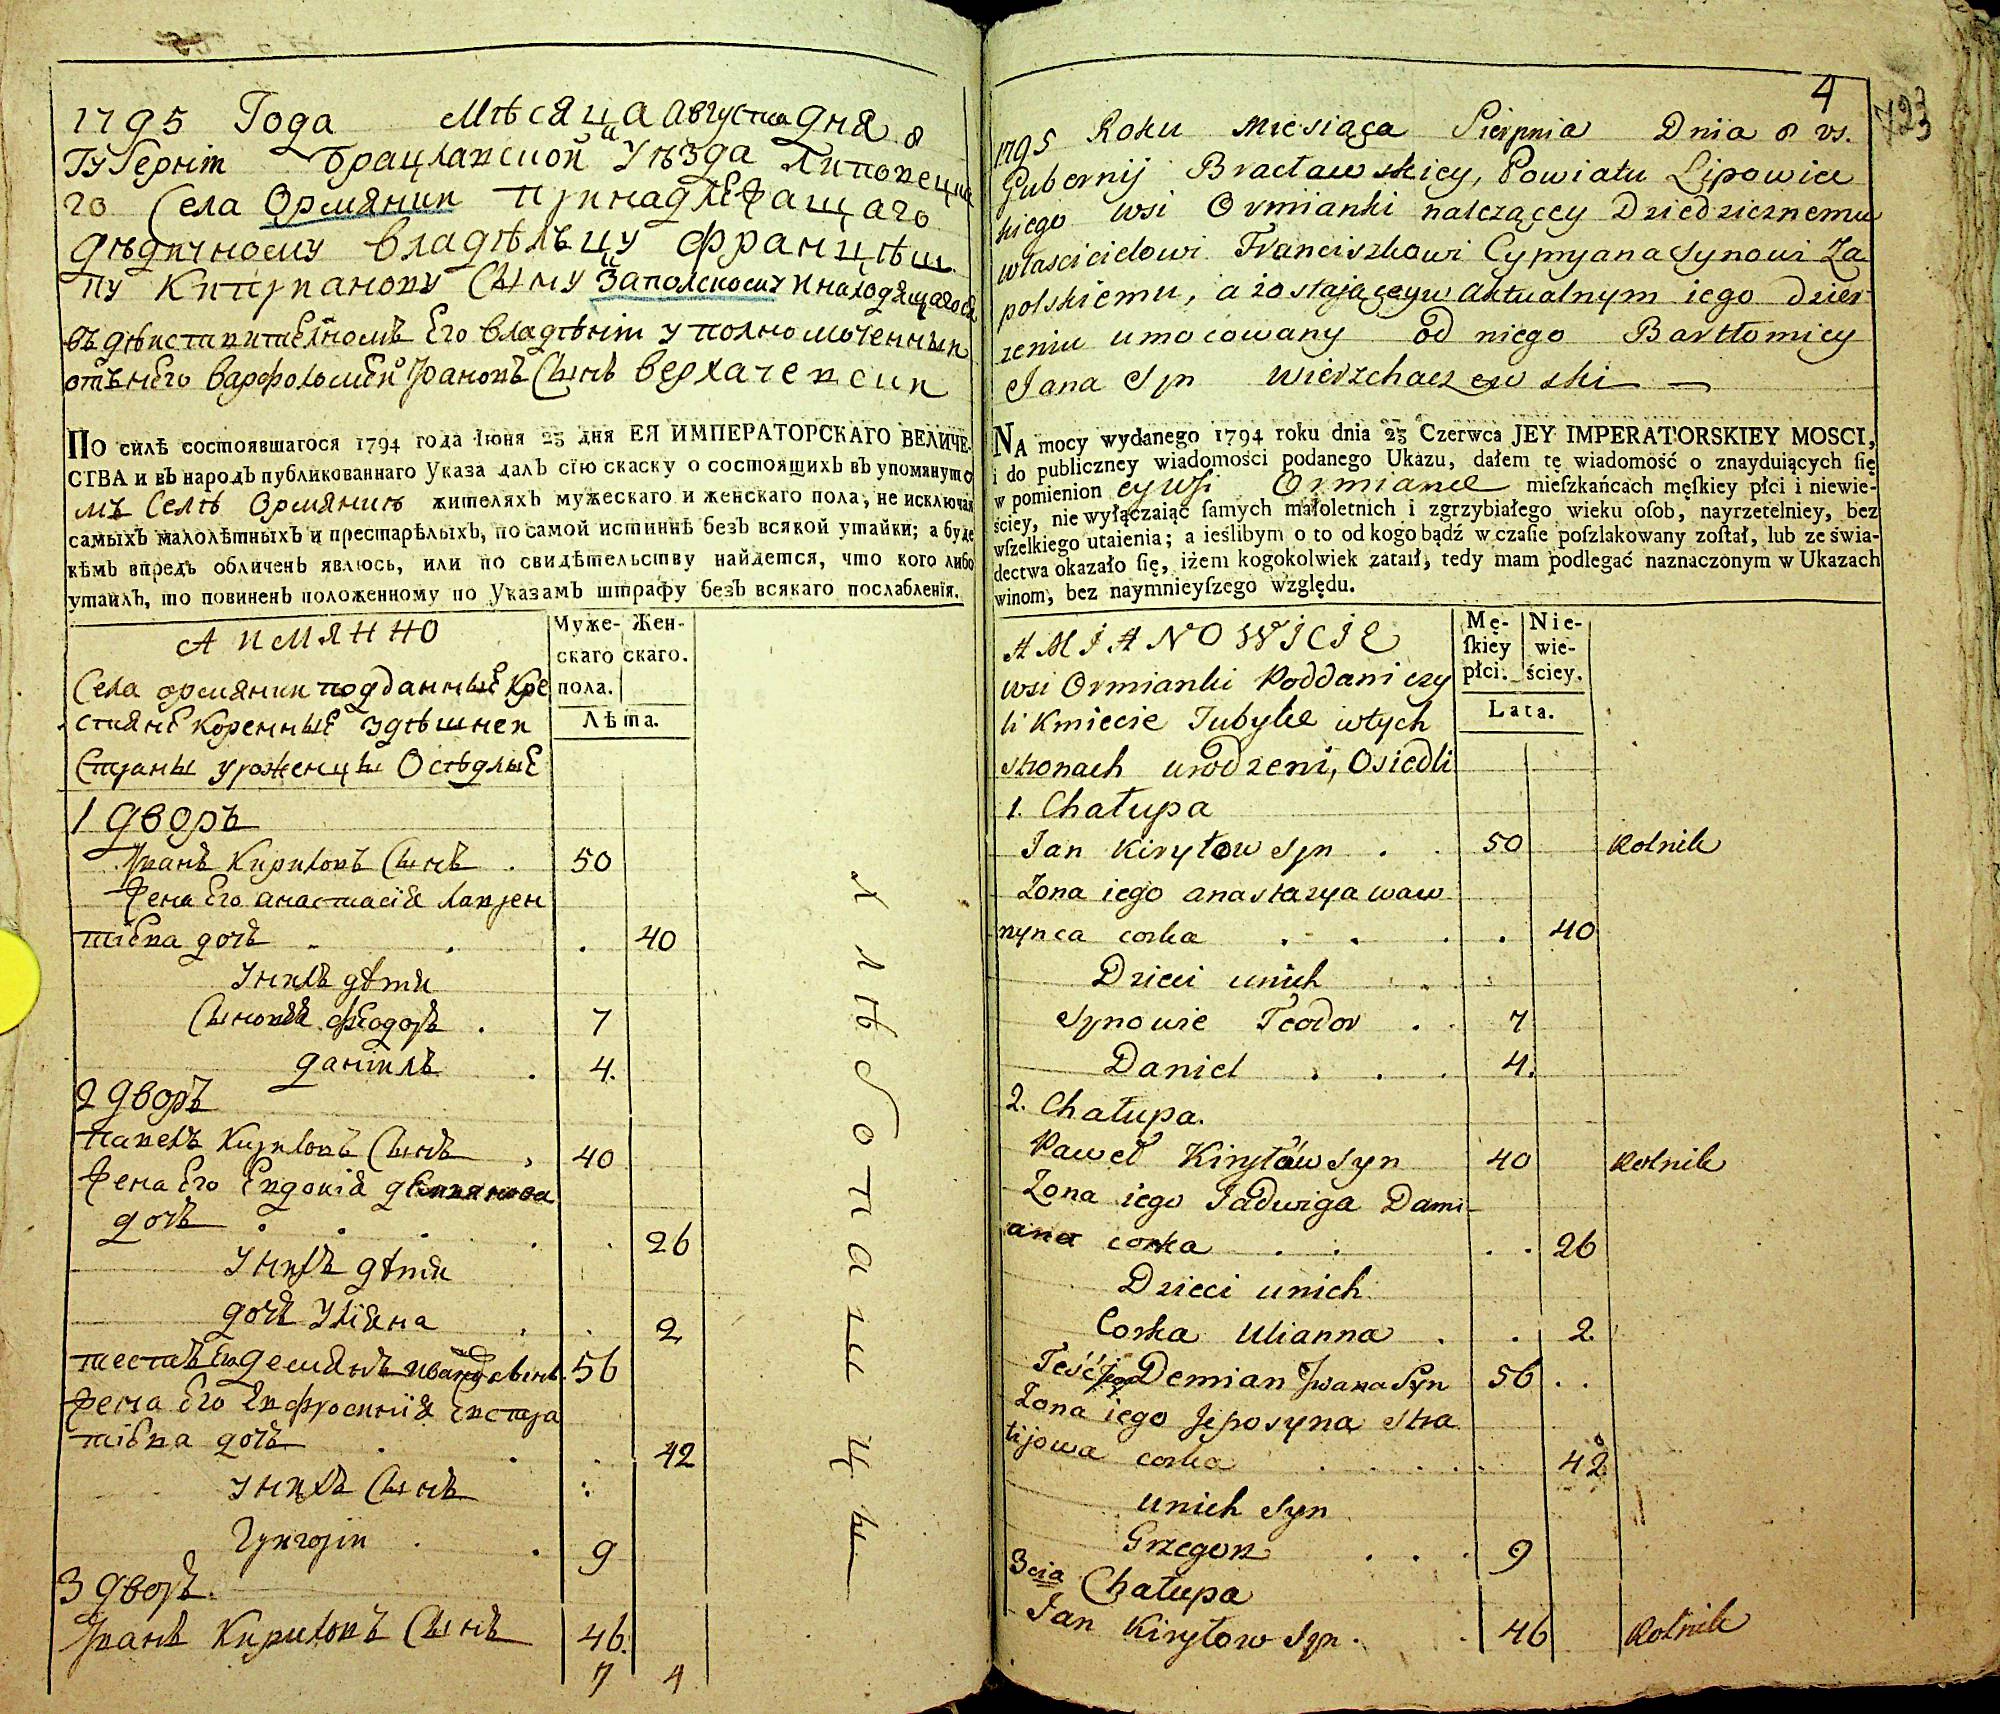 1795 Года Мѣсяца Августа дня 8
Губерніи Брацлавской Уѣзда Липовецка
го Села Орлиянки принадлежащаго
дѣдичному владѣльцу Францѣш
ку Киприанову Сыну Запольскому и находящагося
въ дѣиствителномъ Его владѣніи уполномоченныи
отъ нЕго варфоломЕи Ивановъ Сынъ верхачевски
По силѣ состоявшагося 1794 года Іюня 23 дня ЕЯ ИМПЕРАТОРСКАГО ВЕЛИЧЕ-
СТВА и въ народъ публикованнаго Указа далъ сїю скаску о состоящихъ въ упомянуто
мъ Селѣ Ормянкѣ жителяхъ мужескаго и женскаго пола, не исключая
самыхъ малолѣтныхъ и престарѣлыхъ, по самой истиннѣ безъ всякой утайки; а буде
кѣмъ впредь обличенъ явлюсь, или по свидѣтельству найдется, что кого либо
утаилъ, то повиненъ положенному по Указамъ штрафу безъ всякаго послабленія.
А ИМЯННО
Муже- Жен-
скаго скаго.
пола.
Лѣта.
Села ормянки подданныЕ Кре
стиянЕ КоренныЕ здѣшнеи
Страны уроженцы ОсѣдлыЕ
1 дворъ
Иванъ Кириловъ Сынъ . 50
Жена Его анастасїя Лаврен
тіЕва дочь . . . 40
У нихъ дѣти
Сыновья ѳЕодоръ . 7
данїилъ . 4.
2 дворъ
павелъ Кириловъ Сынъ , 40
Жена Его Евдокія демянова
дочь . . . . 26
У нихъ дѣти
дочь Уліяна . . 2
тесть Его демянъ иванов сынъ 56
Жена Его Евфросинїя Евстра
тіЕва дочь . . . 42
У нихъ Сынъ
Григорїи . . 9
3 дворъ.
Иванъ Кириловъ Сынъ 46.
7 4
хлѣбопашцы
4
723
1795 Roku Miesiąca Sierpnia Dnia 8 vs.
Gubernij Bracławskiey, Powiatu Lipowiec
kiego wsi Ormianki nalezącey Dziedzicznemu
własccicielowi Franciszkowi Cypryana Synowi Za
polskiemu, a zostającey w aktualnym iego dzier
zeniu umocowany od niego Bartłomiey
Jana Syn Wierzchaczewski —
NA mocy wydanego 1794 roku dnia 23 Czerwca JEY IMPERATORSKIEY MOSCI,
i do publiczney wiadomości podanego Ukazu, dałem tę wiadomość o znayduiących ſię
w pomienion eywsi Ormiance mieſzkańcach męſkiey płci i niewie-
ściey, nie wyłączaiąc ſamych małoletnich i zgrzybiałego wieku oſob, nayrzetelniey, bez
wſzelkiego utaienia; a ieślibym o to od kogo bądź w czaſie poſzlakowany zoſtał, lub ze świa-
dectwa okazało ſię, iżem kogokolwiek zataił, tedy mam podlegać naznaczonym w Ukazach
winom, bez naymnieyſzego względu.
A MIANOWICIE
Mę- Nie-
ſkiey wie-
płci. ściey.
Lata.
wsi Ormianki Poddani czy
li Kmiecie Tubylce wtych
stronach urodzeni, Osiedli
1. Chałupa
Jan Kiryłow syn . . 50 Rolnik
Zona iego anastazya waw
rynca corka . . . . 40
Dzieci unich
Synowie Teodor . . 7
Daniel . . . 4.
2. Chałupa.
Paweł Kiryłów syn 40 Rolnik
Zona iego Jadwiga Dami
ana corka . . . . 26
Dzieci unich
Corka Ulianna . . 2.
Teść jego Demian Jwana Syn 56 . .
Zona iego Jeprosyna Stra
tijowa corka . . . . 42
unich syn
Grzegorz . . . 9
3cia Chałupa
Jan Kiryłow Syn . . 46 Rolnik